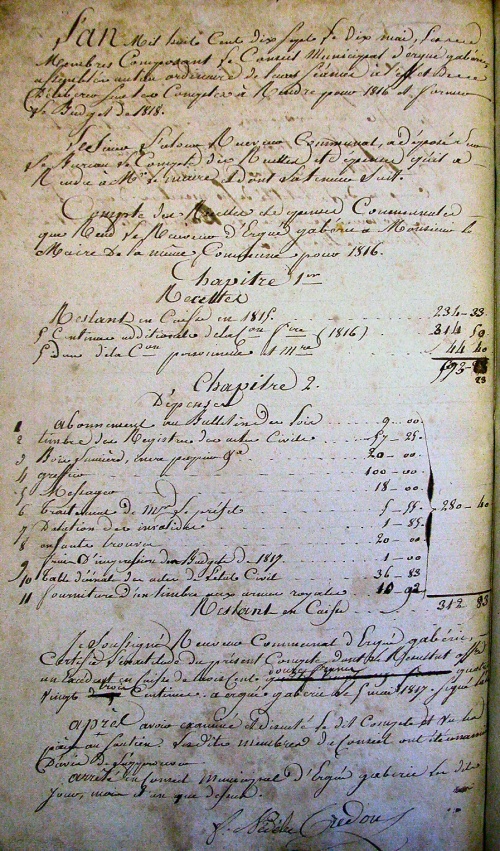 L'an Mil huit Cent dix Sept le dix mai, Les
Membres Composant le Conseil Municipal d'ergué gabéric,
à l'effet de
Délibérer Sur les Comptes à Rendre pour 1816 et former
le Budget de 1818.
Le Sieur Receveur Communal, a déposé sur
le Bureau le Compte des Recettes et dépenses qu'il a
Rendre à Mr. le maire et dont la teneur Suit.
Compte des Recettes et depenses Communales
que Rend le Receveur d'Ergué gabéric à Monsieur le
Maire de la même Commune pour 1816.
Chapitre 1er
Recettes
Restant en Caisse en 1815. 234-33
5 Centimes additionels de la Con fere (1816) 314 50
5 d. de la Con personnelle et mre 44 40
593-23
23
Chapitre 2.
Dépenses
1 abonnement au Bulletin des Lois 9-00
2 timbre des Registres des actes Civils 57-25
3 Bois, lumière, encre papier &a 20-00
4 greffier 100-00
5 Messager 18-00
6 traitement de Mr le préfet 5-55
7 Dotation des invalides 1-85
8 enfants trouvés 20-00
9 frais d'impression des Budgets de 1817 1-00
10 table décennale des actes de l'état Civil 36-83
11 fourniture d'un timbre aux armes royales 10-92
280-40
Restant en Caisse 312 83
Je Soussigné Receveur Communal d'Ergué gabéric,
Certifie l'exactitude du présent Compte dont le Résultat offre
un Excédent en caisse de trois Cents douze francs quatre
vingt trois Centimes. a ergué gaberic le 5 mai 1817. Signé
après avoir examiné et discuté le dit Compte et vu les
pièces au Soutien les dits membres du Conseil ont
D'avis de l'approuver
arrêté en Conseil municipal d'Ergué gaberic les dits
Jour, mois et an que dessus.
Nédélec Credou